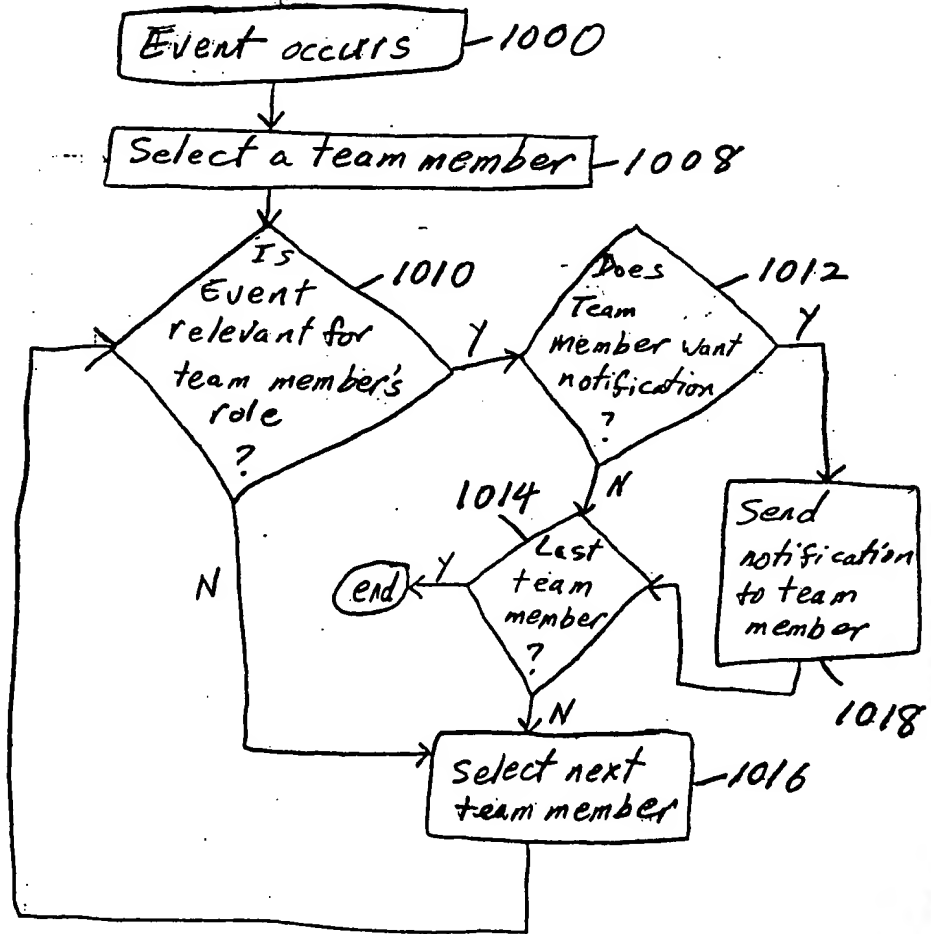 Event occurs
1000
Select a team member
1008
Is
Event
relevant for
team member's
role
?
1010
Y
N
Does
Team
member want
notification
?
1012
Y
N
1014
Last
team
member
?
Y
end
N
Send
notification
to team
member
1018
Select next
team member
1016